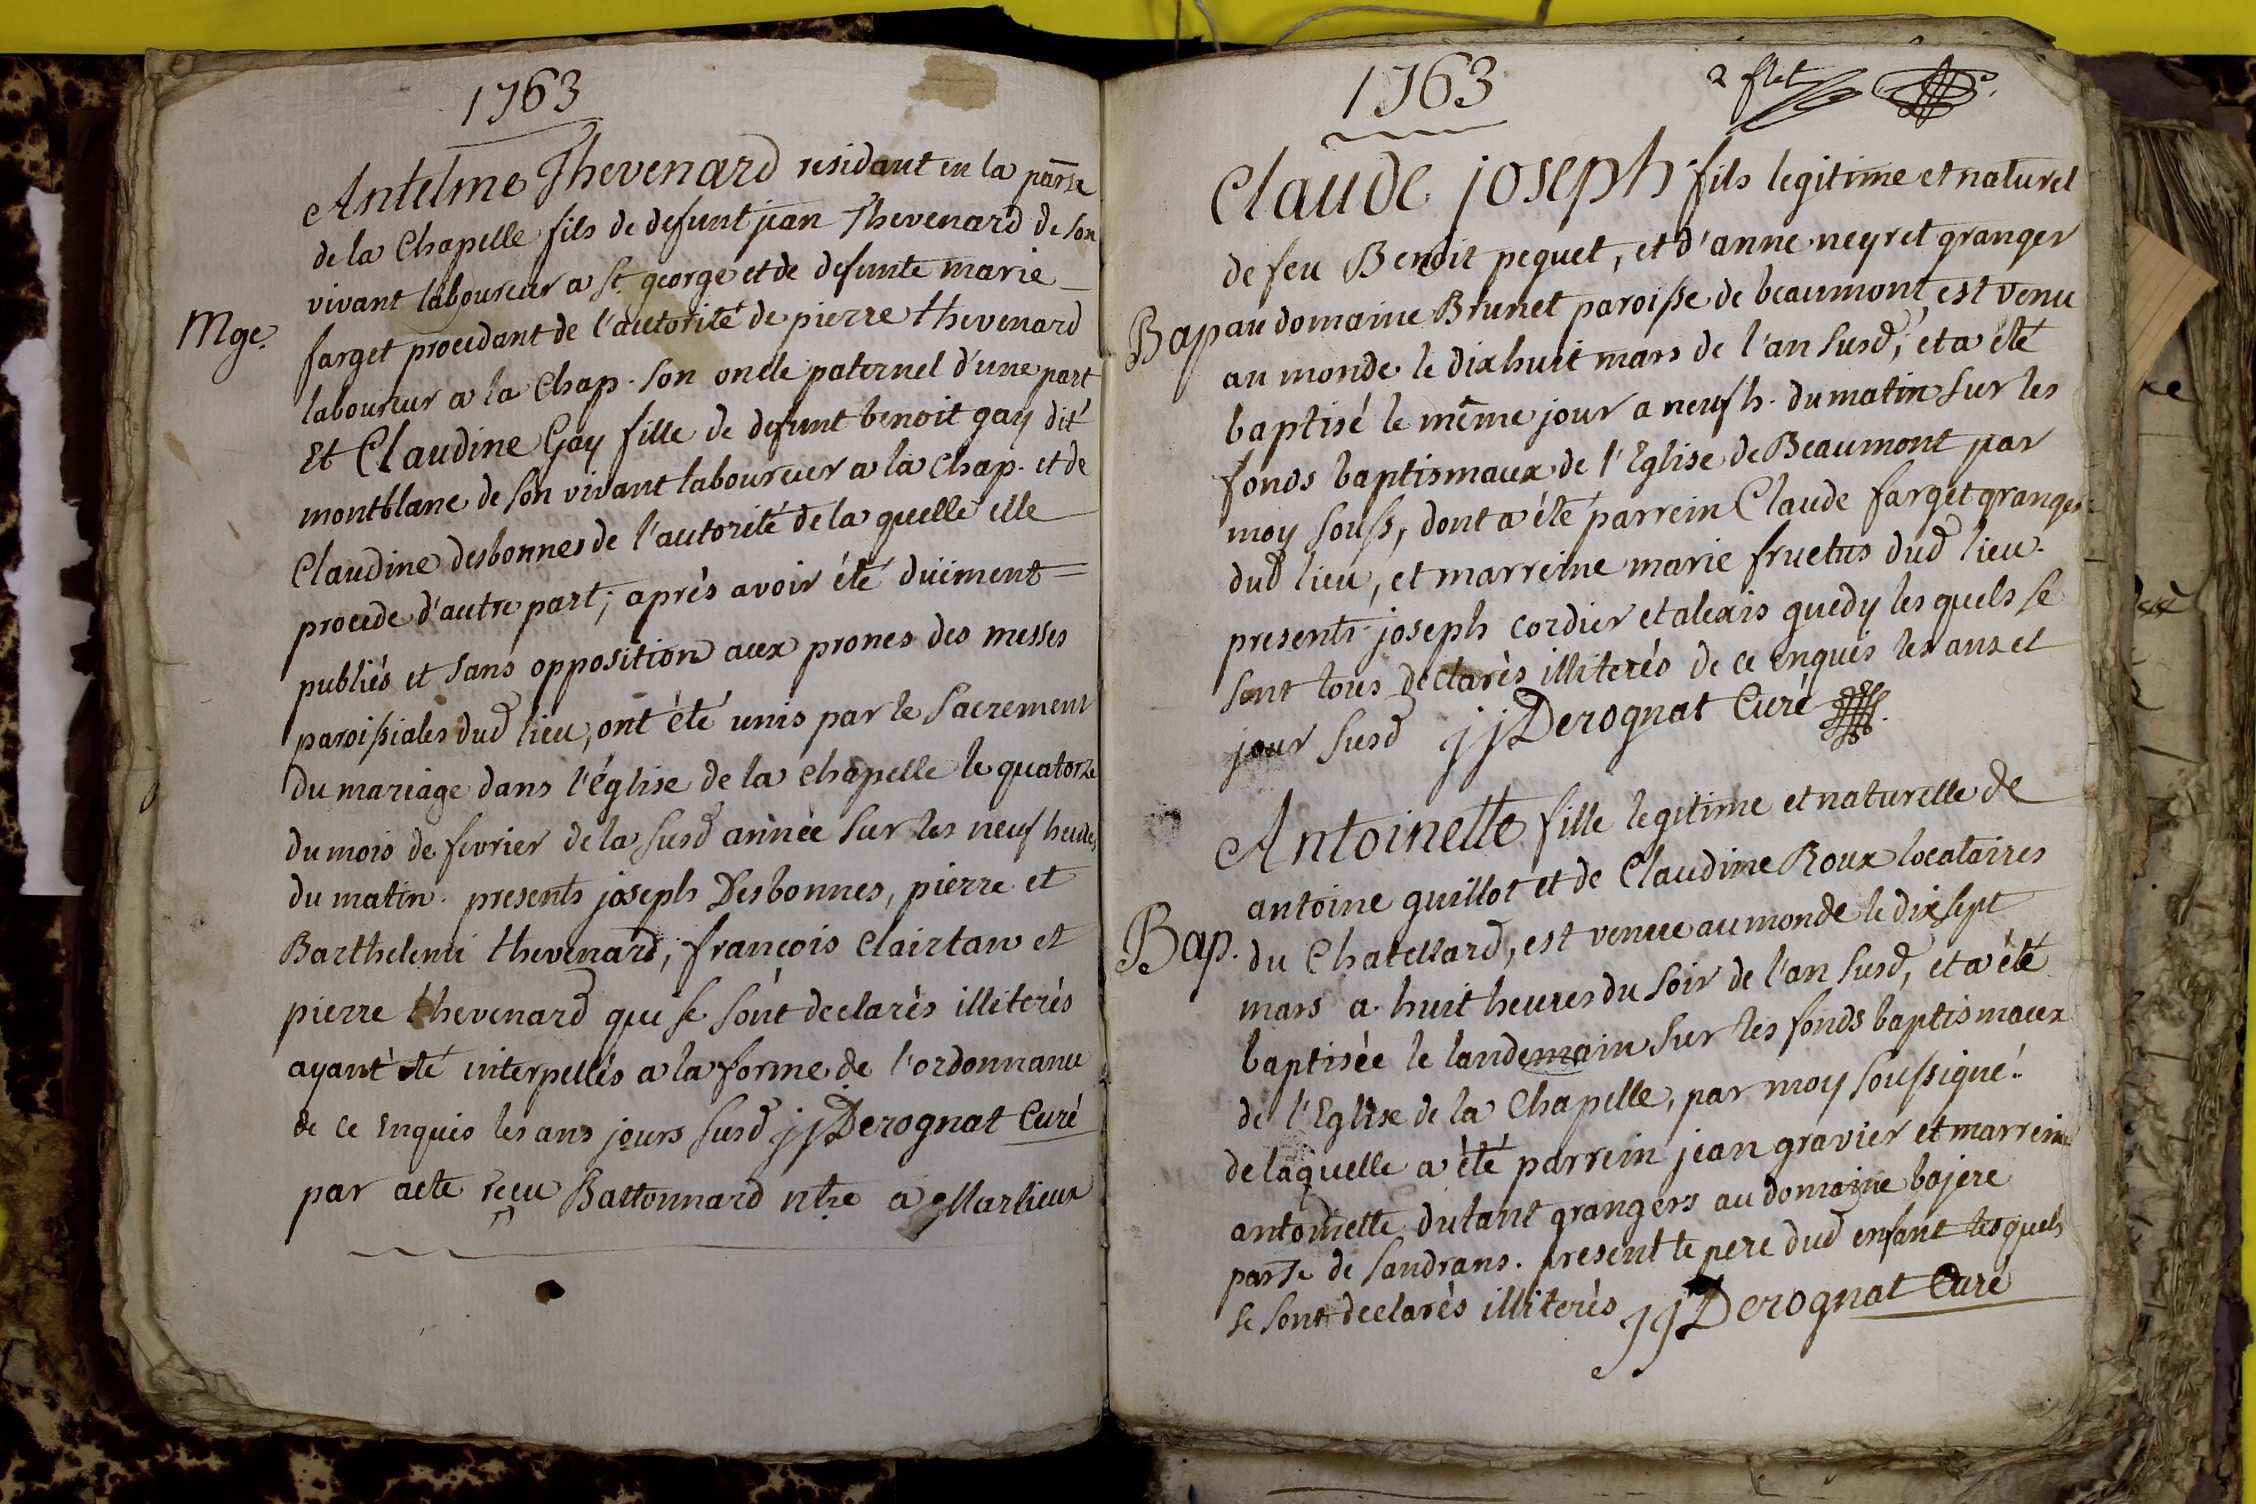 1763
Antelme Thevenard residant en la parse
de la Chapelle fils de defunt jean Thevenard de son
vivant laboureur a st george et de defunte marie
Mge. farget procedant de l'autorité de pierre thevenard
laboureur a la Chap. son oncle paternel d'une part
Et Claudine Gay fille de defunt benoit gay dit
montblanc de son vivant laboureur a la chap. et de
Claudine desbonnes de l'autorité de la quelle elle
procede d'autre part; après avoir été düement
publiés et sans opposition aux prones des messes
paroissiales dud lieu, ont été unis par le Sacrement
du mariage dans l'église de la chapelle le quatorze
du mois de fevrier de la susd année sur les neuf heures
du matin. presents joseph Desbonnes, pierre et
Barthelemi thevenard, françois clairtan et
pierre thevenard qui se sont declarés illiterés
ayant été interpellés a la forme de l'ordonnance
de ce enquis les ans jours susd jjDerognat Curé
par acte reçu Battonnard ntre a Marlieux
1763
2 flet
Claude joseph fils legitime et naturel
de feu Benoit pequet, et d'anne neyret granger
Bap au domaine Brunet paroisse de beaumont, est venu
au monde le dixhuit mars de l'an susd, et a été
baptisé le même jour a neuf h. du matin sur les
fonds baptismaux de l'Eglise de Beaumont par
moy souss, dont a été parrein Claude farget granger
dud lieu, et marreine marie fruetus dud lieu.
presents joseph cordier et alexis guedy les quels se
sont tous declarés illiterés de ce enquis les ans et
jour susd jjDerognat Curé
Antoinette fille legitime et naturelle de
antoine guillot et de Claudine Roux locataires
Bap. du Chatellard, est venue au monde le dixsept
mars a huit heures du soir de l'an susd, et a été
baptisée le landemain sur les fonds baptismaux
de l'Eglise de la Chapelle, par moy soussigné.
de laquelle a été parrein jean gravier et marreine
antoinette dutant grangers au domaine bajere
parse de Sandrans. present le pere dud enfant lesquels
se sont declarés illiterés jjDerognat Curé